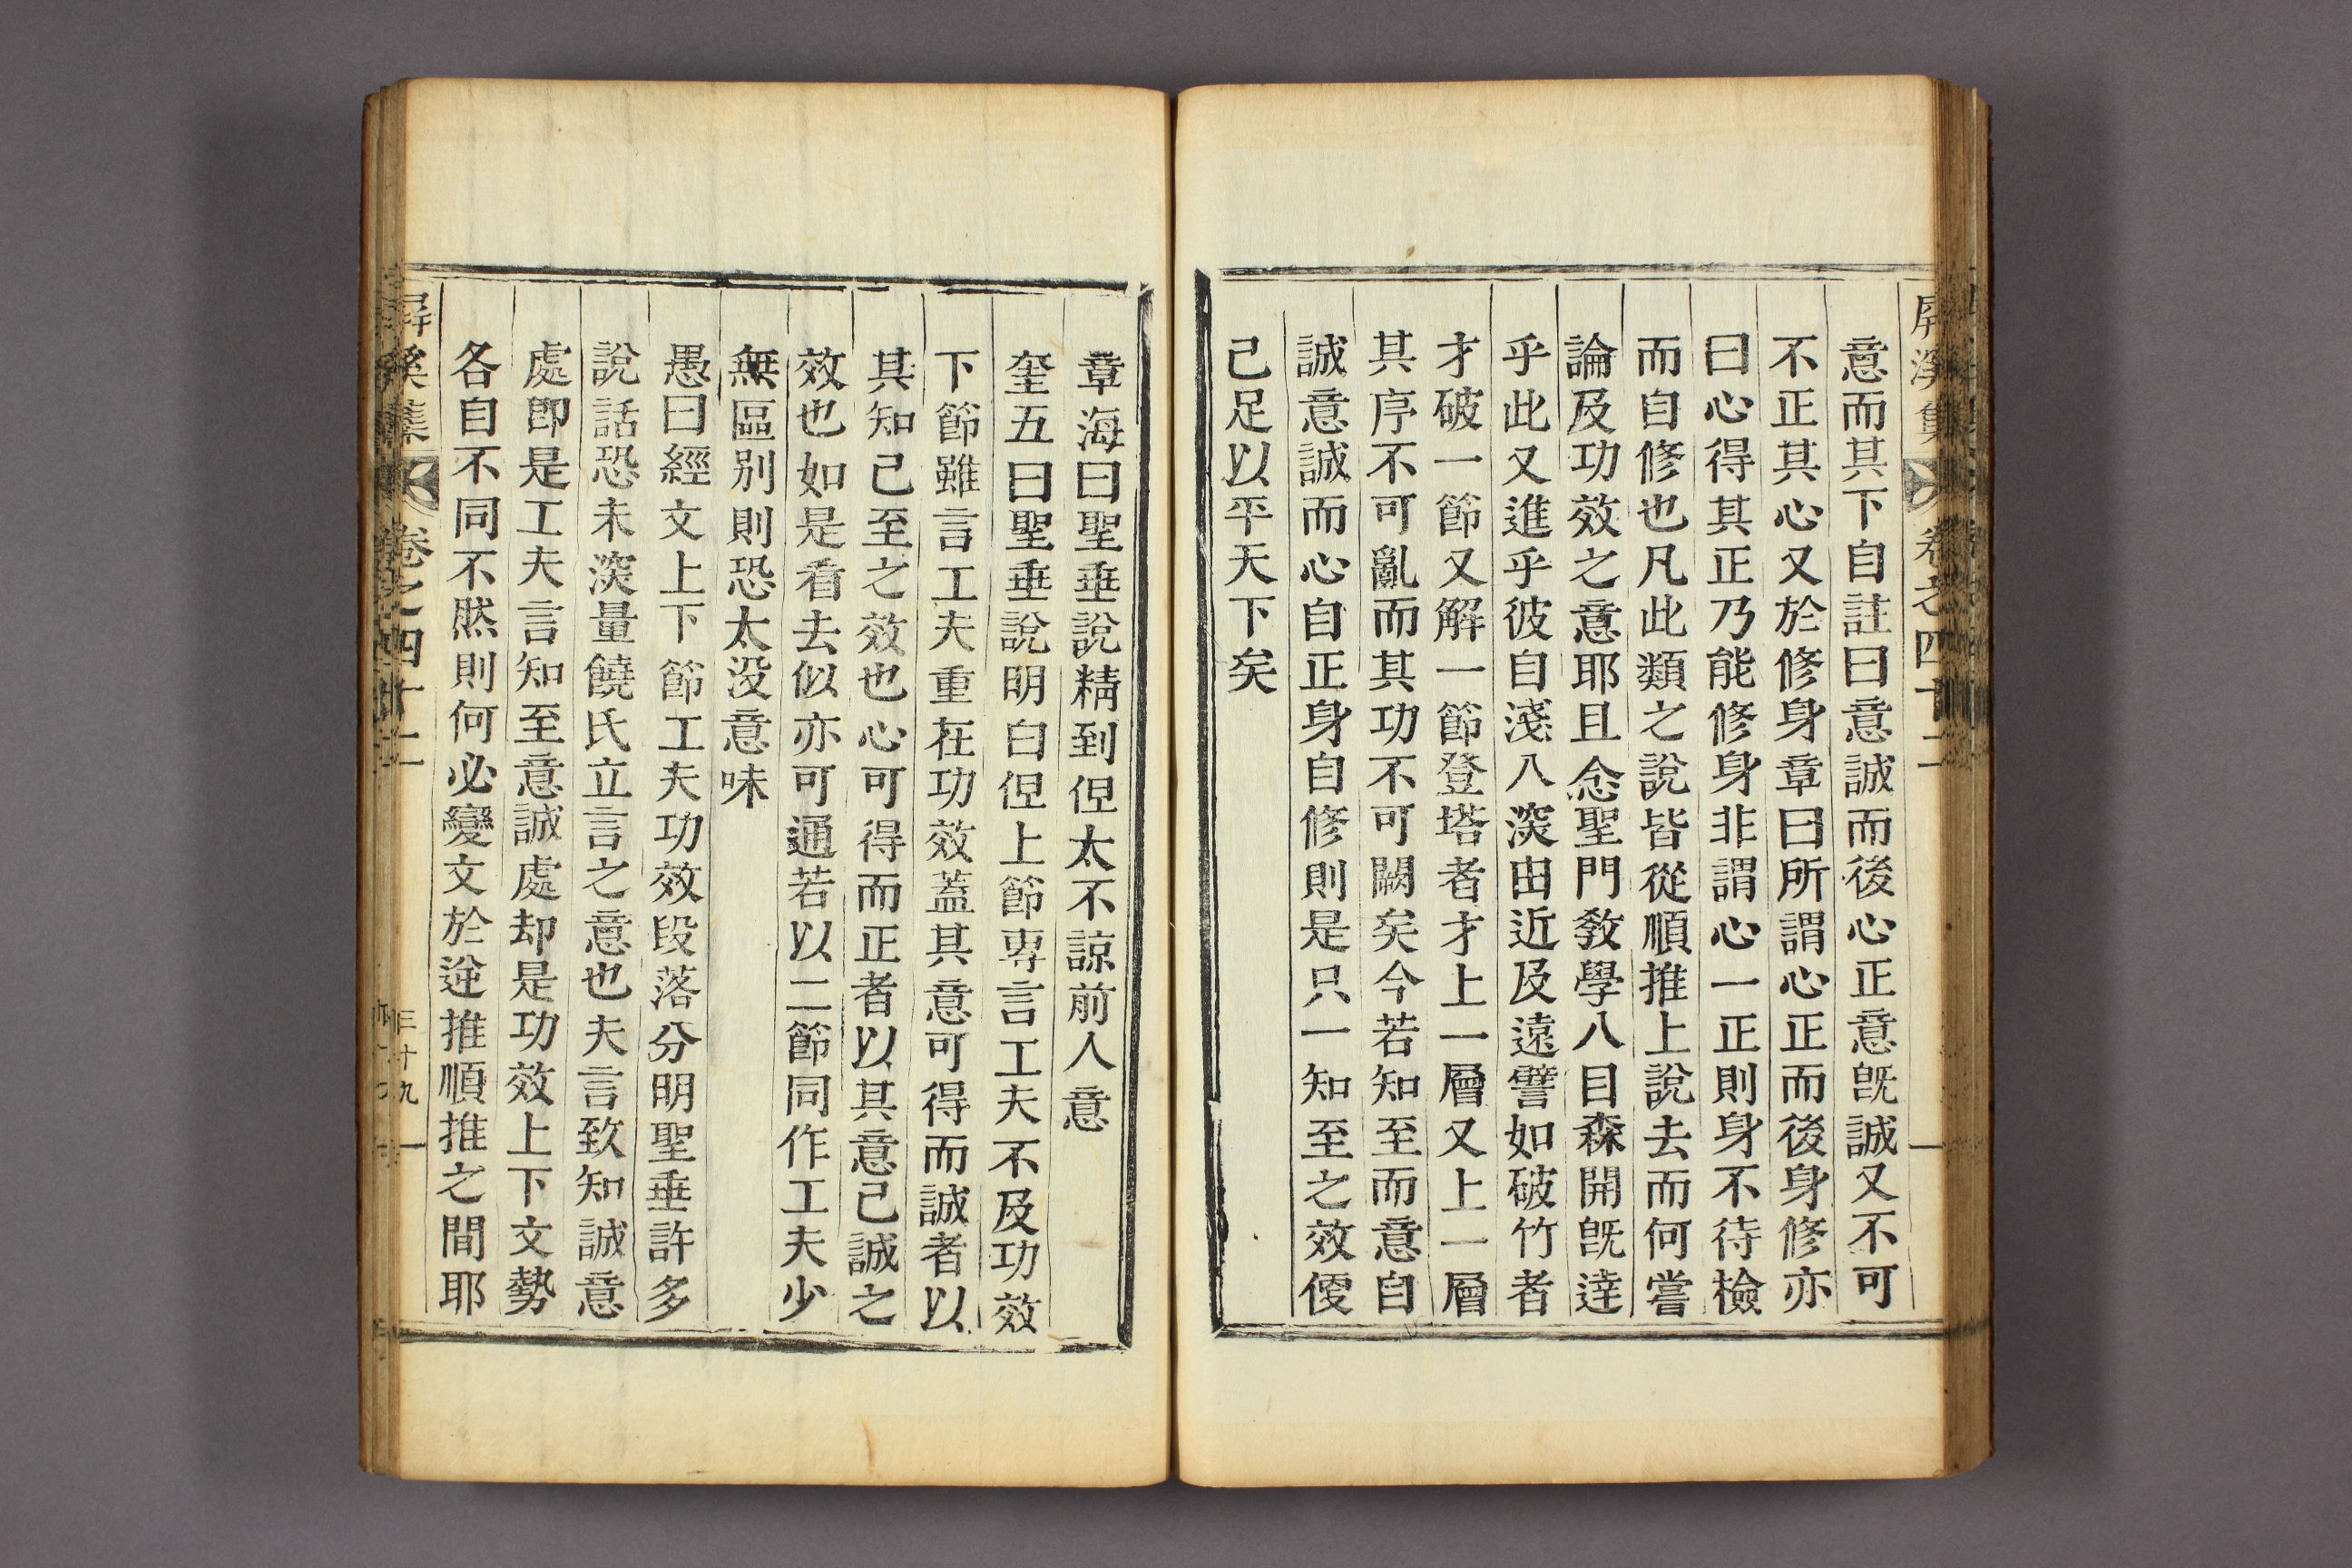 屛溪集 卷之四十二
意而其下自註曰意誠而後心正意旣誠又不可
不正其心又於修身章曰所謂心正而後身修亦
曰心得其正乃能修身非謂心一正則身不待檢
而自修也凡此類之說皆從順推上說去而何嘗
論及功效之意耶且念聖門敎學八目森開旣達
乎此又進乎彼自淺八深由近及遠譬如破竹者
才破一節又解一節登塔者才上一層又上一層
其序不可亂而其功不可闕矣今若知至而意自
誠意誠而心自正身自修則是只一知至之效便
己足以平天下矣
章海曰聖垂說精到但太不諒前人意
奎五曰聖垂說明白但上節專言工夫不及功效
下節雖言工夫重在功效蓋其意可得而誠者以
其知己至之效也心可得而正者以其意己誠之
效也如是看去似亦可通若以二節同作工夫少
無區別則恐太沒意味
愚曰經文上下節工夫功效段落分明聖垂許多
說話恐未深量饒氏立言之意也夫言致知誠意
處卽是工夫言知至意誠處却是功效上下文勢
各自不同不然則何必變文於逆推順推之間耶
屛溪集 卷之四十二 三十九